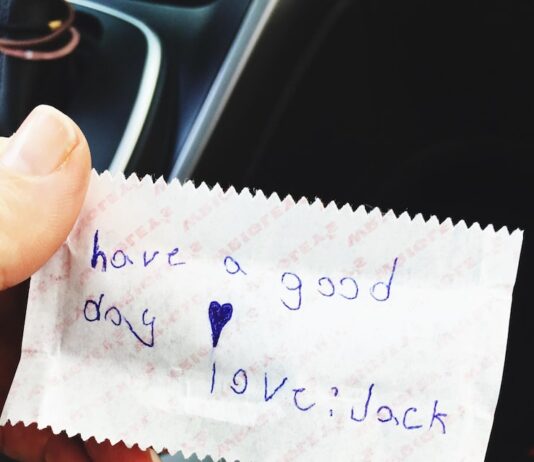 have a good
day ♥
love:Jack